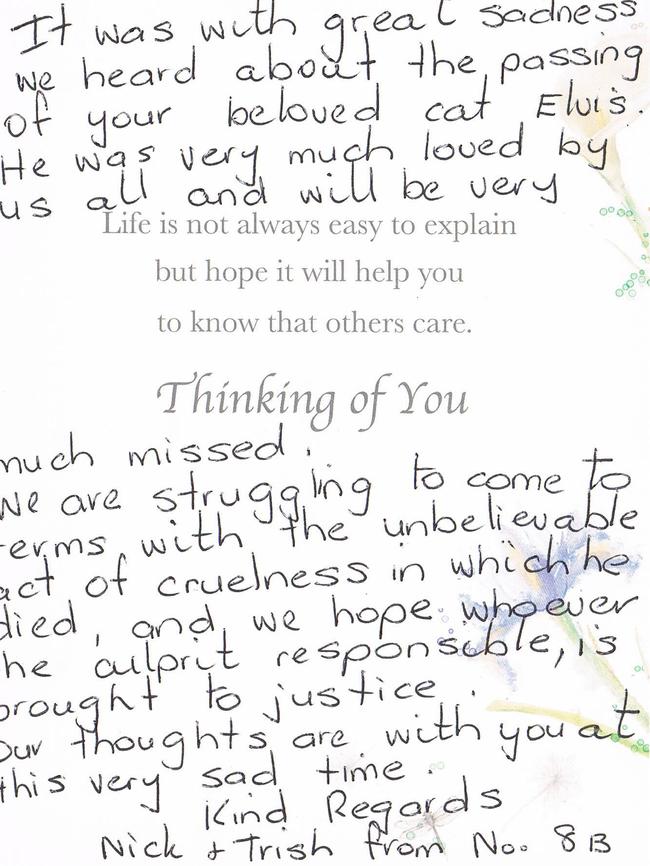 It was with great sadness
we heard about the passing
of your beloved cat Elvis.
He was very much loved by
us all and will be very
Life is not always easy to explain
but hope it will help you
to know that others care.
Thinking of You
much missed.
We are struggling to come to
terms with the unbelievable
act of cruelness in which he
died, and we hope whoever
the culprit responsible, is
brought to justice.
Our thoughts are with you at
this very sad time.
Kind Regards
Nick & Trish from No. 8B